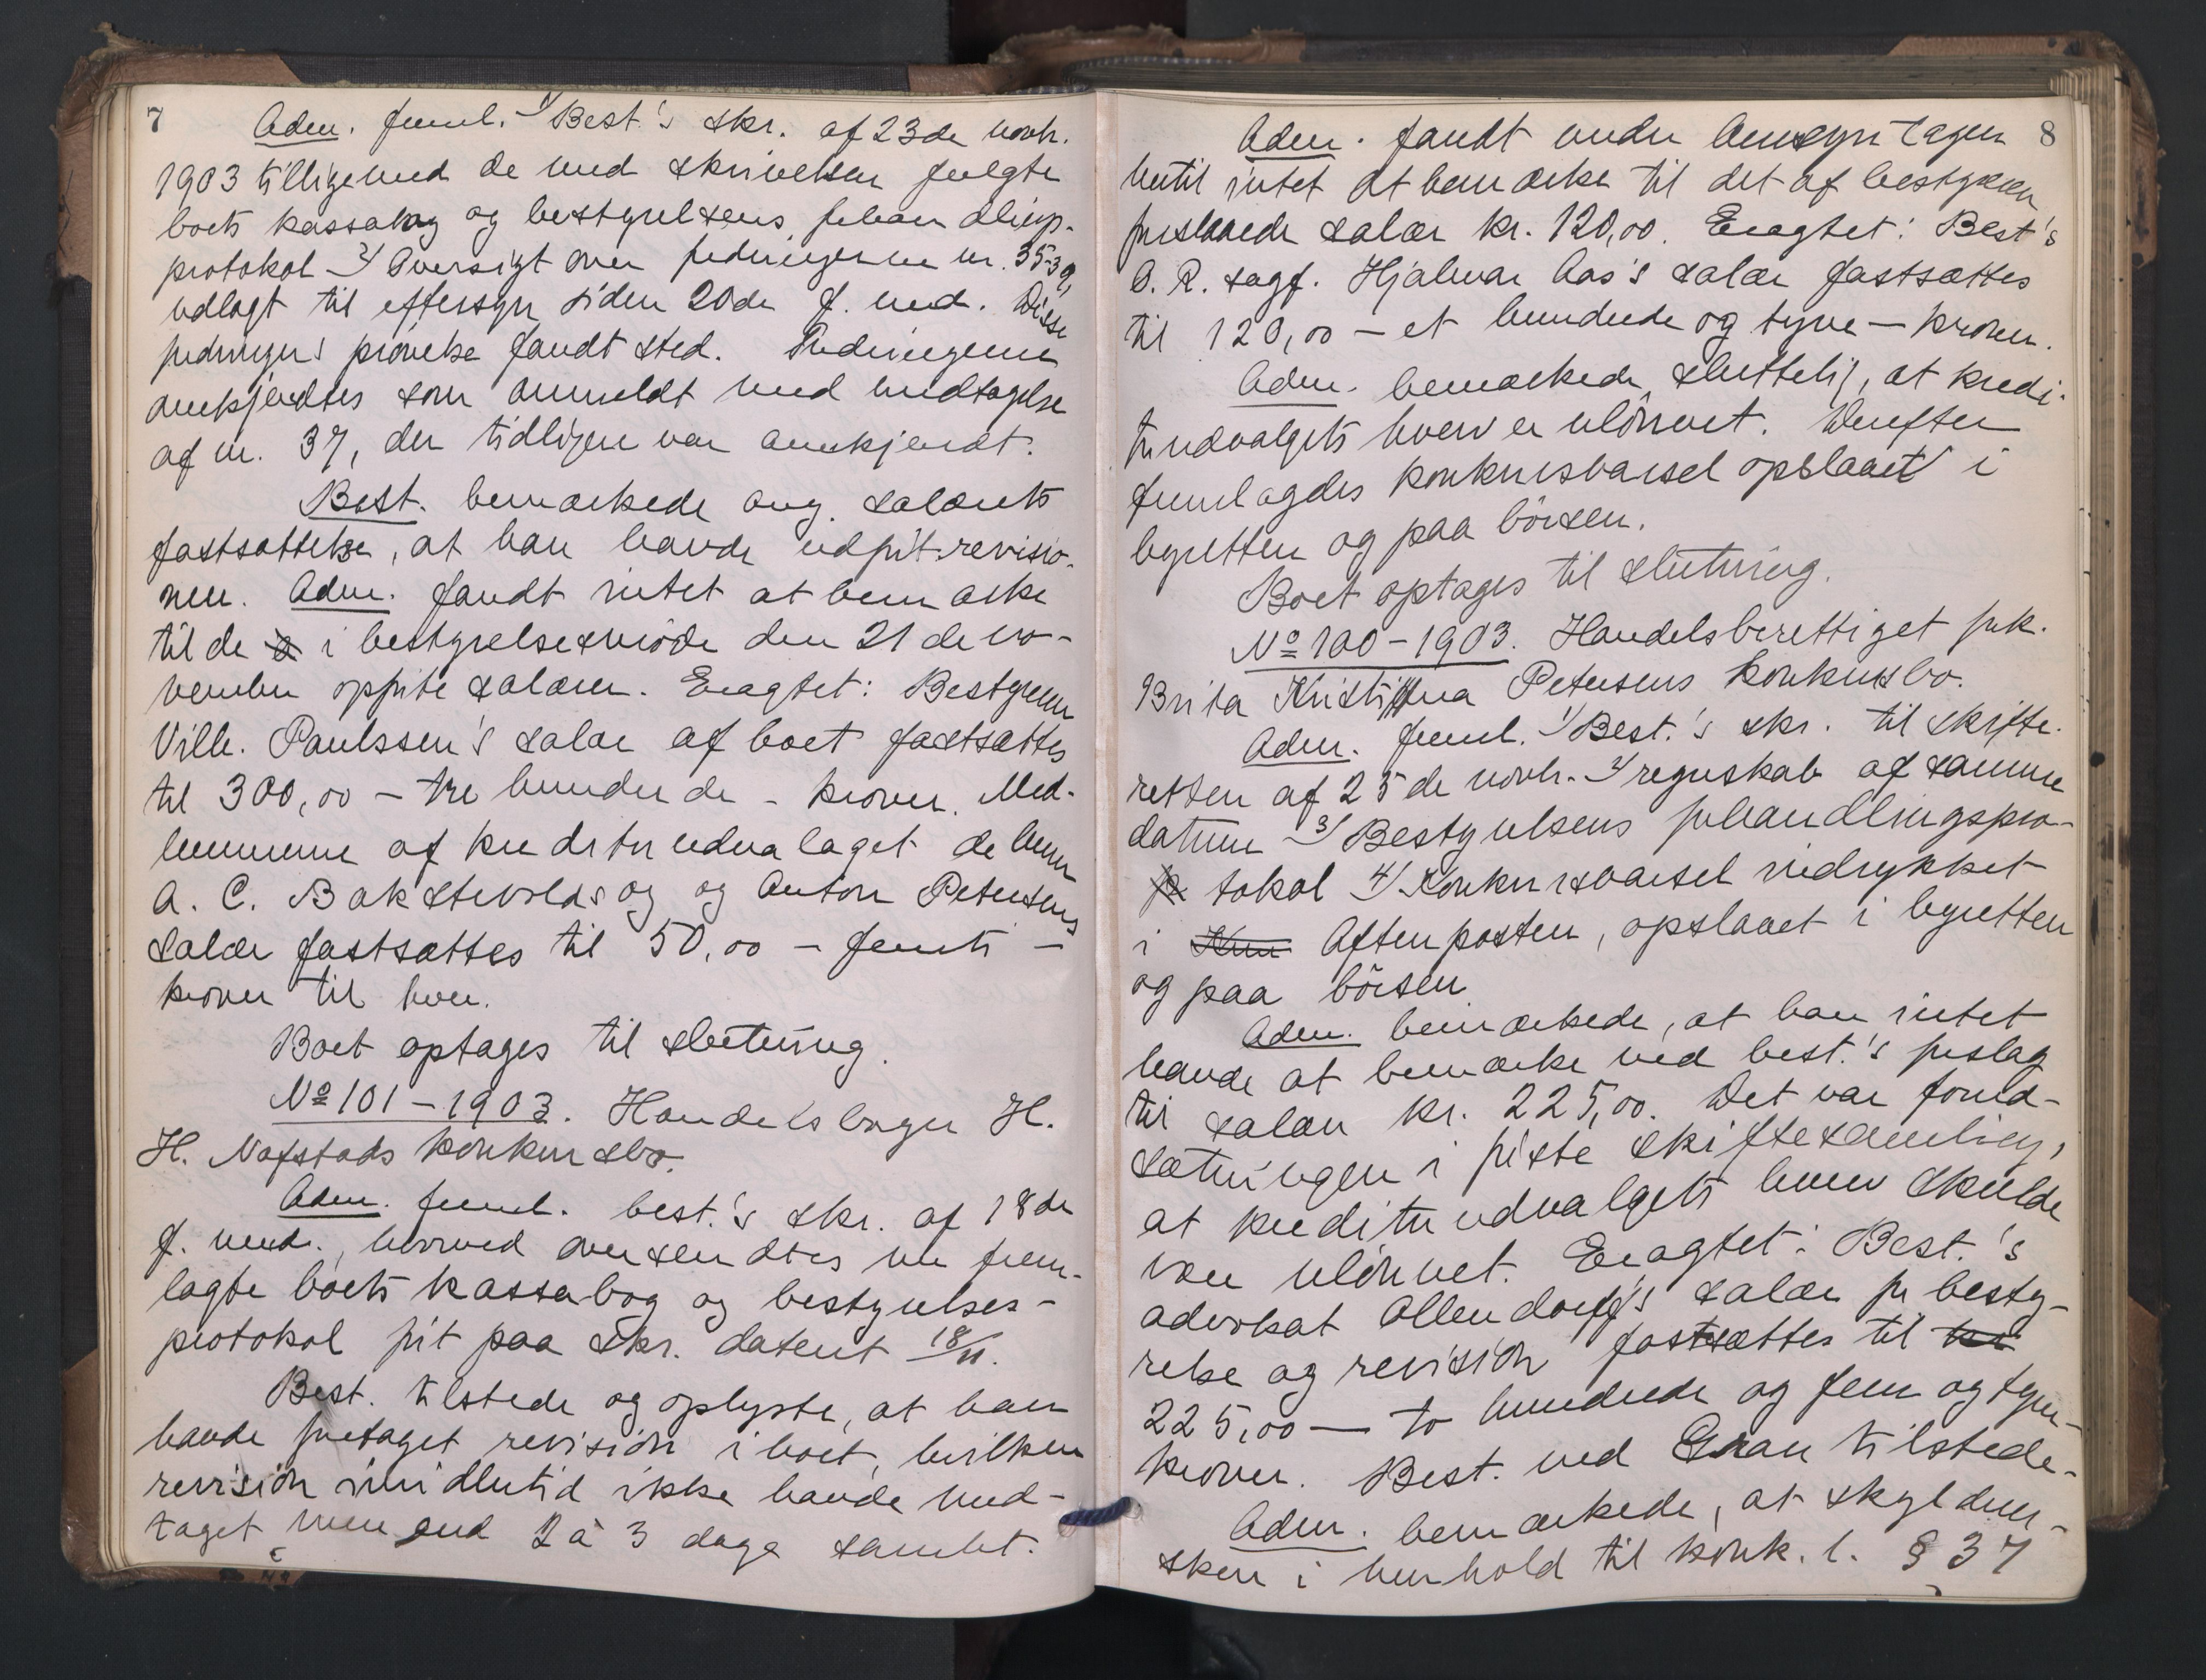 7
Adm. freml. 1/ Best.'s skr. af 23de novbr.
1903 tilligemed de med skrivelsen fulgte
boets kassabog og bestyrelsens forhandlings-
protokol 2/ Oversigt over fordringerne nr. 35-39,
udlagt til eftersyn siden 20de f. md. Disse
fordringers prøvelse fandt sted. Fordringerne
anerkjendtes som anmeldt med undtagelse
af nr. 37, der tidligere var anerkjendt.
Best. bemærkede ang. salærets
fastsættelse, at han havde udført revisio-
nen. Adm. fandt intet at bemærke
til de i bestyrelsesmøde den 21de no-
vember opførte salærer. Eragtet: Bestyreren
Vilh. Paulssen's salær af boet fastsættes
til 300,00 – tre hundrede – kroner. Med-
lemmerne af kreditorudvalaget de herrer
A. C. Bakstevolds og og Anton Petersens
salær fastsættes til 50,00 – femti –
kroner til hver.
Boet optages til slutning.
No 101 – 1903. Handelsborger H.
H. Nafstads konkursbo.
Adm. freml. best.'s skr. af 18de
f. md., hvorved oversendtes nu frem-
lagte boets kassabog og bestyrelses-
protokol ført paa skr. dateret 18/11.
Best. tilstede og oplyste, at han
havde foretaget revision i boet, hvilken
revision imidlertid ikke havde med-
taget mere end 2 à 3 dage samlet.
8
Adm. fandt under hensyn tagen
hertil intet at bemærke til det af bestyreren
foreslaaede salær kr. 120,00. Eragtet: Best's
O. R. sagf. Hjalmar Aas's salær fastsættes
til 120,00 – et hundrede og tyve – kroner.
Adm. bemærkede sluttelig, at kredi-
torudvalgets hverv er ulønnet. Derefter
fremlagdes konkursvarsel opslaaet i
byretten og paa børsen.
Boet optages til slutning.
No 100 – 1903. Handelsberettiget frk.
Brita Kristina Petersens konkursbo.
Adm. freml. 1/ Best.'s skr. til skifte-
retten af 25de novbr. 2/ regnskab af samme
datum 3/ Bestyrelsens forhandlingspro-
tokol 4/ Konkursvarsel indrykket
i Aftenposten, opslaaet i byretten
og paa børsen.
Adm. bemærkede, at han intet
havde at bemærke ved best.'s forslag
til salær kr. 225,00. Det var forud-
sætningen i første skiftesamling,
at kreditorudvalgets hverv skulde
være ulønnet. Eragtet: Best.'s
advokat Allendorff's salær for besty-
relse og revision fastsættes til
225,00 – to hundrede og fem og tyve –
kroner. Best. ved Gran tilstede.
Adm. bemærkede, at skyldner-
sken i henhold til konk. l. § 37